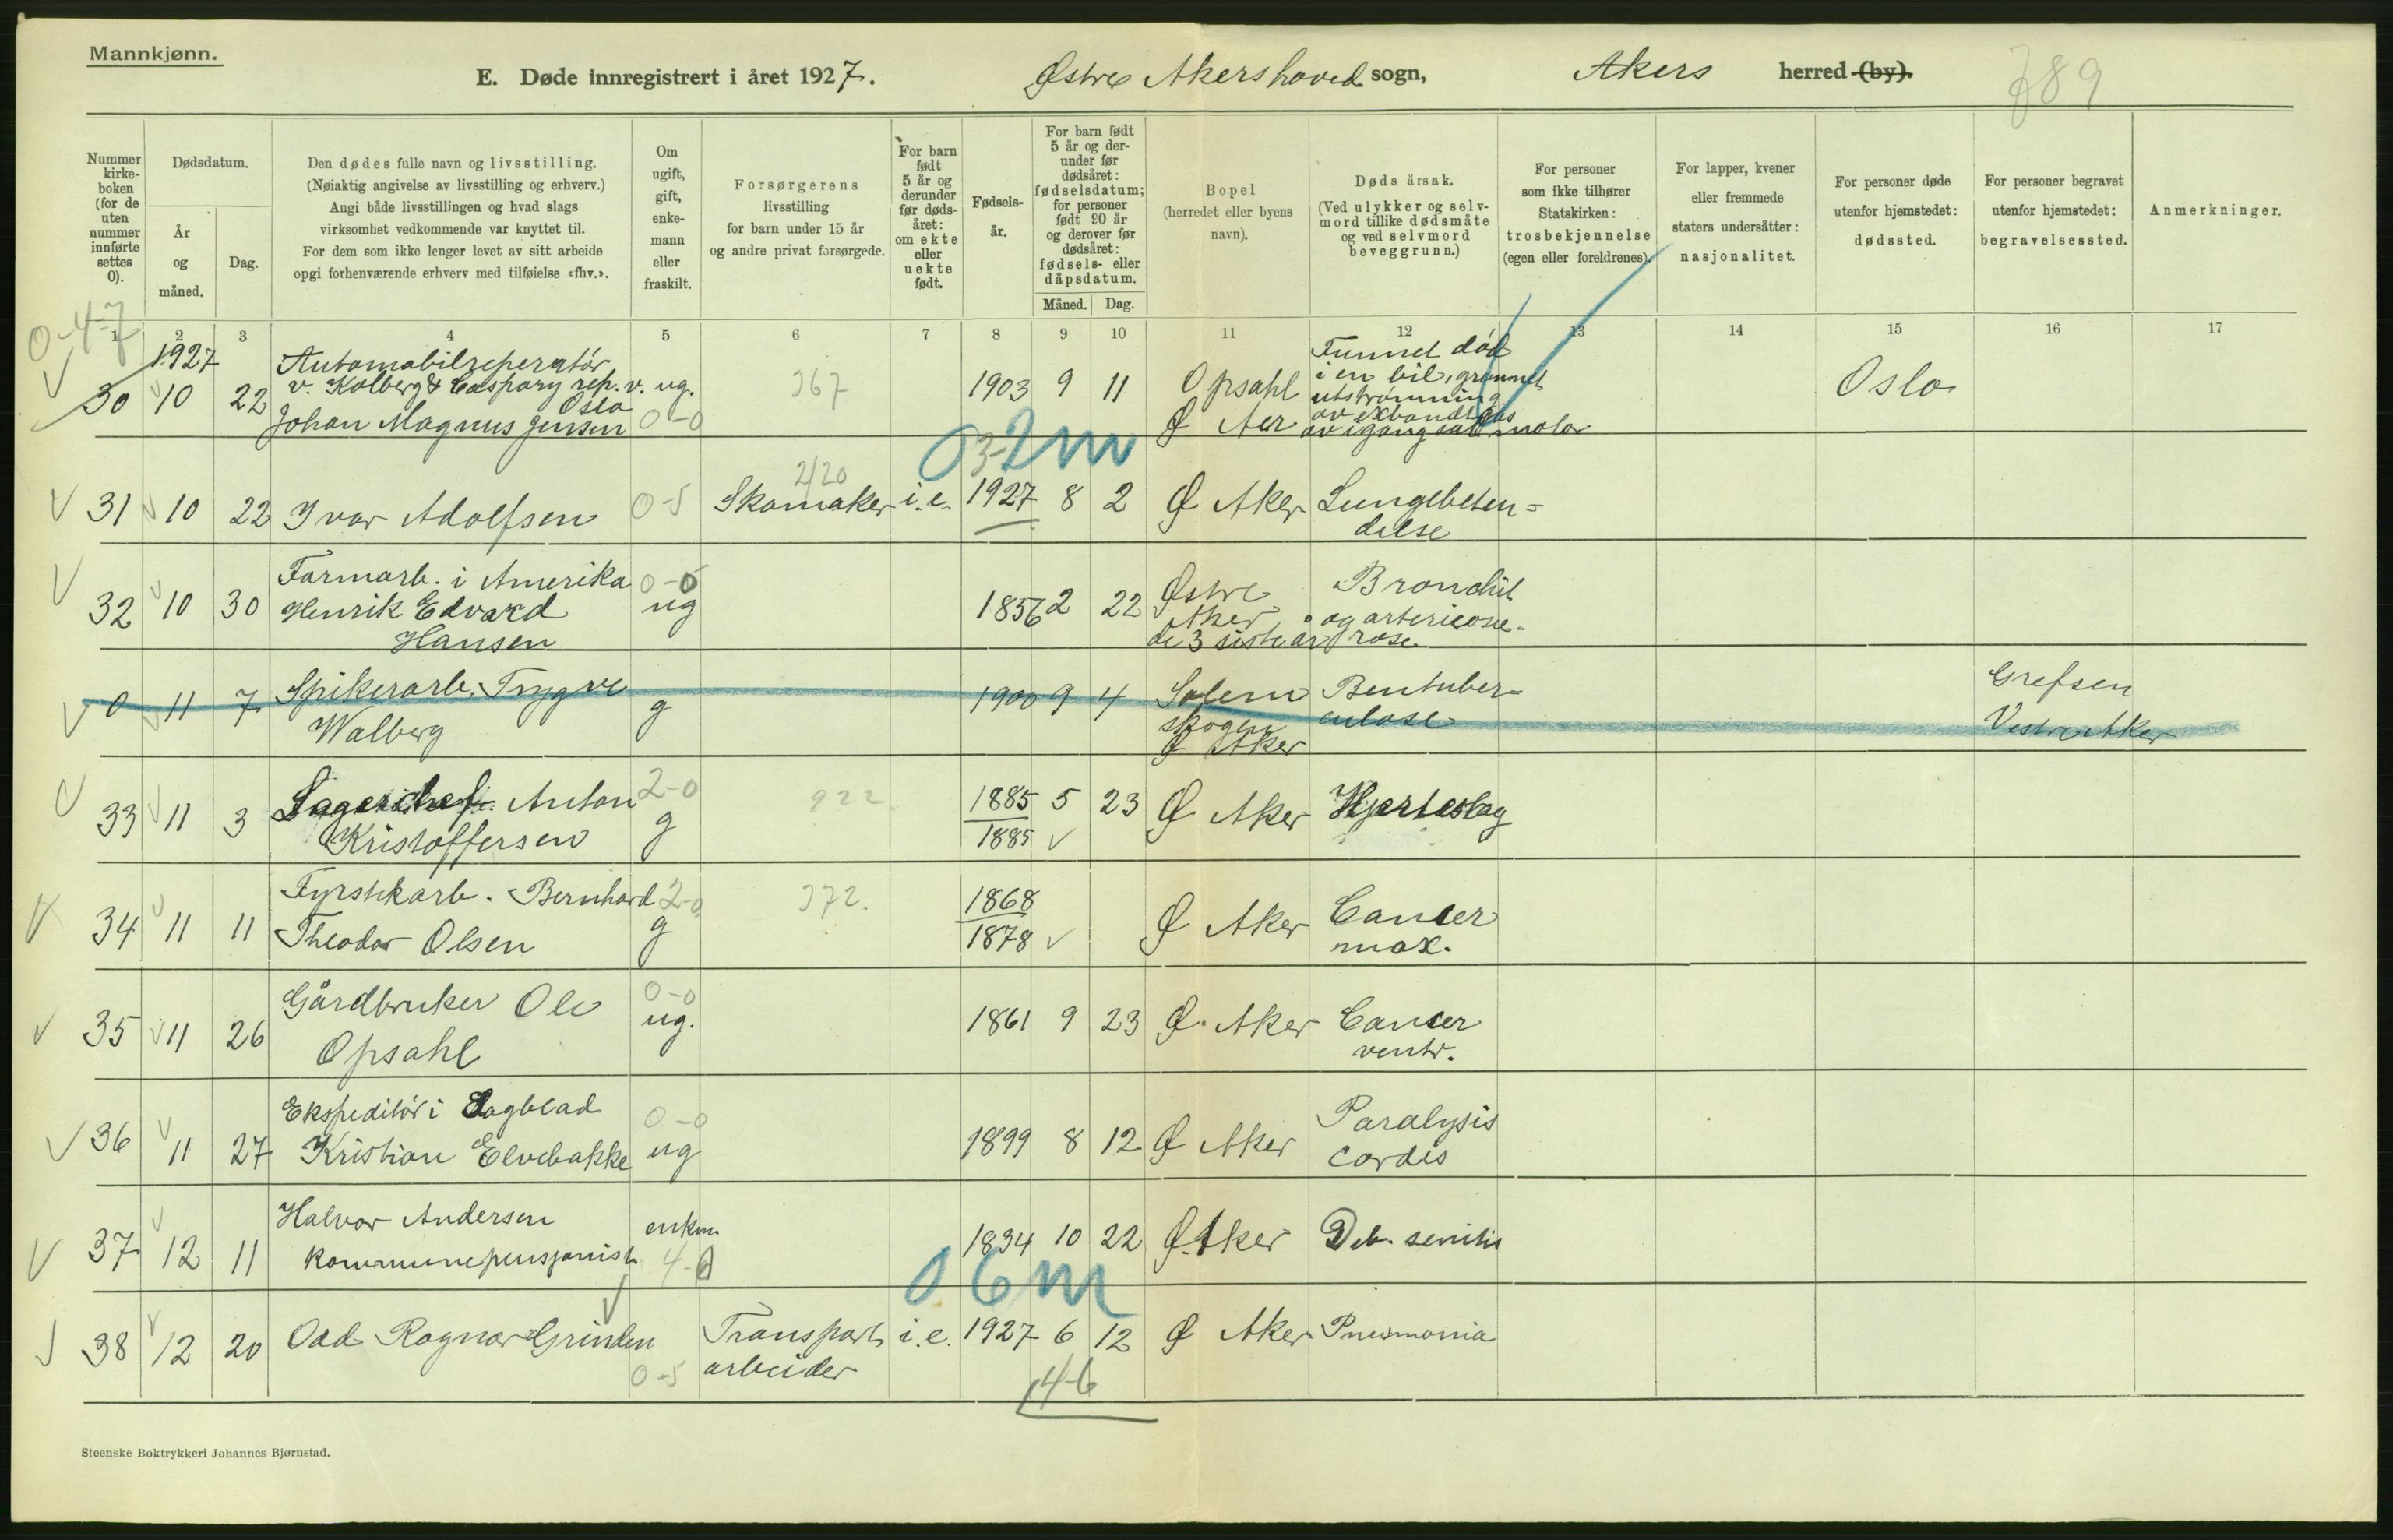 Mannkjønn.
E. Døde innregistrert i året 1927. Østre Akers hoved sogn, Akers herred (by).
Nummer kirke-boken (for de uten nummer innførte settes 0).
Dødsdatum.
År og måned.
Dag.
Den dødes fulle navn og livsstilling.
(Nøiaktig angivelse av livsstilling og erhverv.)
Angi både livsstillingen og hvad slags
virksomhet vedkommende var knyttet til.
For dem som ikke lenger levet av sitt arbeide
opgi forhenværende erhverv med tilføielse «fhv.».
Om ugift, gift, enke-mann eller fraskilt.
Forsørgerens
livsstilling
for barn under 15 år
og andre privat forsørgede.
For barn født 5 år og derunder før døds-året: om ekte eller uekte født.
Fødsels-år.
For barn født 5 år og der-under før dødsåret: fødselsdatum; for personer født 90 år og derover før dødsåret: fødsels- eller dåpsdatum.
Måned. Dag.
Bopel
(herredet eller byens navn).
Døds årsak.
(Ved ulykker og selv-mord tillike dødsmåte og ved selvmord beveggrunn.)
For personer
som ikke tilhører
Statskirken:
trosbekjennelse
(egen eller foreldrenes).
For lapper, kvener
eller fremmede
staters undersåtter:
nasjonalitet.
For personer døde
utenfor hjemstedet:
dødssted.
For personer begravet
utenfor hjemstedet:
begravelsessted.
Anmerkninger.
0-4-7
1 2 3 4 5 6 7 8 9 10 11 12 13 14 15 16 17
1927 Automobilreperatør Funnet død
v. Kolberg & Caspary rep. v. ug. i en bil, grunnet
30 10 22 Oslo 367 1903 9 11 Opsahl utstrømning Oslo
Johan Magnus Jensen 0-0 Ø Aer
2/20
31 10 22 Ivar Adolfsen 0-5 Skomaker i.e. 1927 8 2 Ø Aker Lungebeten=
delse
Farmarb. i Amerika 0-0 Østre Bronchit
32 10 30 Henrik Edvard ug 1856 2 22 Aker
Hansen de 3 siste år
0 11 7 Spikerarb. Trygve g 1900 9 4 Solem Bentuber= Grefsen
Walberg skogen culose Vestre Aker
Ø Aker
33 11 3 Lagerchef. Anton 2-0 g 922 1885 5 23 Ø Aker Hjerteslag
Kristoffersen 1885
Fyrstikarb. Bernhard 2-0 372. 1868 Cancer
34 11 11 Theodor Olsen g 1878 Ø Aker max.
35 11 26 Gårdbruker Ole 0-0 ug. 1861 9 23 Ø. Aker Cancer
Opsahl ventr.
Ekspeditør i Dagblad 0-0 Paralysis
36 11 27 Kristian Elvebakke ug 1899 8 12 Ø Aker cordis
Halvor Andersen enkm.
37 12 11 kommunepensjonist 4-0 1834 10 22 Ø. Aker Deb. senilis
0 6 m
38 12 20 Odd Ragnar Grinden 0-5 Transport i.e. 1927 6 12 Ø Aker Pneumonia
arbeider
14-6
Steenske Boktrykkeri Johannes Bjørnstad.